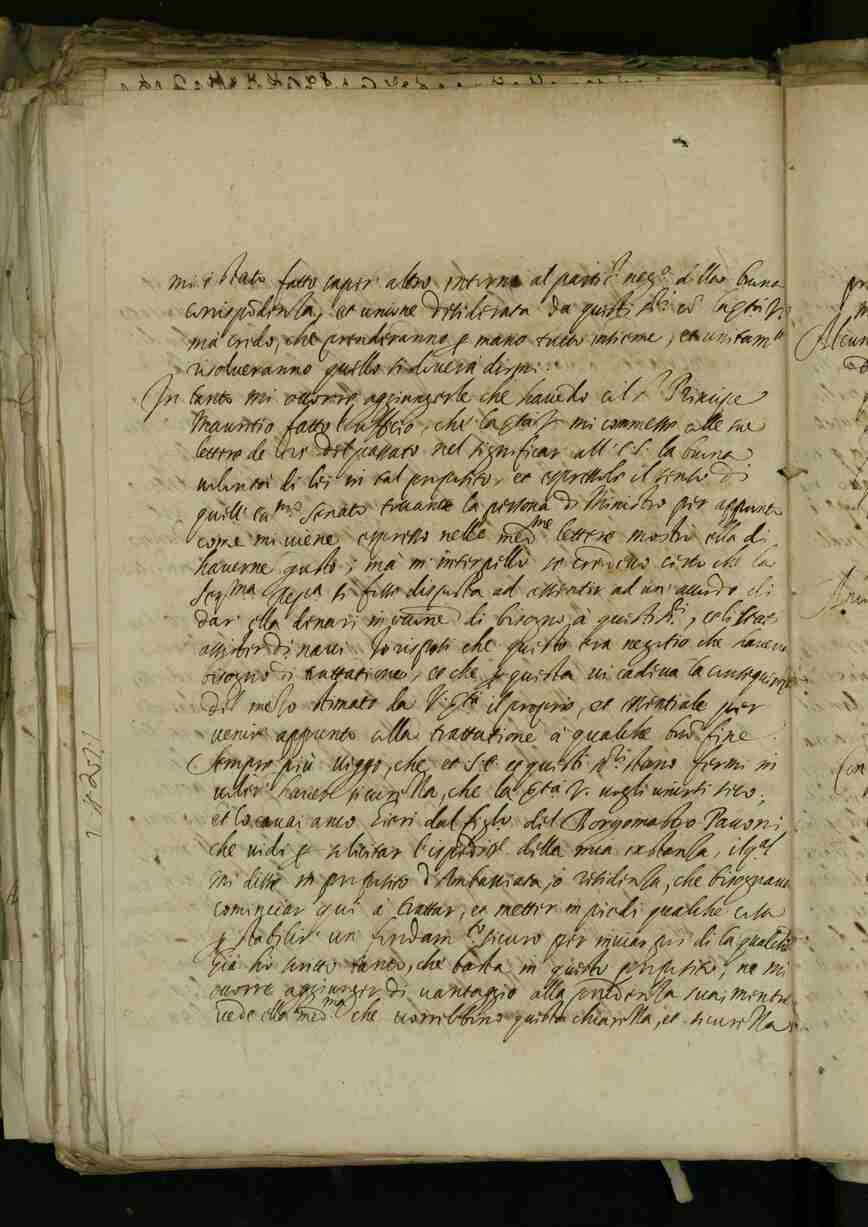 mi è stato fatto saper altro intorno al partic.r neg.o della buona
corrispondenza, et unione desiderata da questi ss.ri cō la Ser.tà V.
ma credo, che prenderanno p mano tutto insieme, et unitam.te
risolveranno quello si doverà dirmi.
In tanto mi occorre aggiungerle che havēdo col s.r Principe
Mauritio fatto l'ufficio, che la Ser.tà V. mi commesse colle sue
lettere de del passato nel significar all'E.S. la buona
volontà di lei in tal proposito, et espressole il senso di
quell'ecc.mo Senato toccante la persona di Ministro per appunto
come mi viene espresso nelle med.me lettere mostrò ella di
haverne gusto; mà m'interpellò se credevo certo che la
Ser.ma Rep.ca si fosse disposta ad assentir ad un accordo di
dar ella denari in occ.ne di bisogno à questi ss.ri, et li stati
assister di navi. Io risposi che questo era negotio che haveva
bisogno di trattatione, et che p questa vi cadeva la conseguenza
del mezo stimato da V. Ser.tà il proprio, et essentiale per
venire appunto alla trattatione à qualche buō fine.
Sempre più veggo, che et S.E. et questi ss.ri stano fermi in
voler havere sicurezza, che la Ser.tà V. vogli unirsi seco;
et lo cavai anco hieri dal figlo del Borgomastro Pauvvi
che vidi p solicitar l'espeditione della mia instanza, il q.al
mi disse in proposito d'Ambasciata, ò residenza, che bisognava
cominciar quì à trattar, et metter in piedi qualche cosa
p stabilir un fondam.to sicuro per inviar poi di la qualche
già hò scritto tanto, che basta in questo proposito, ne mi
occorre aggiunger di vantaggio alla prudenza sua, mentre
vede ella med.ma che vorrebbono questa chiarezza, et sicurezza